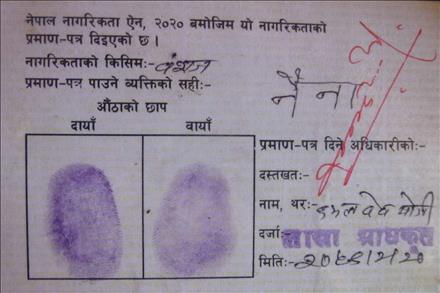 नेपाल नागरिकता ऐन, २०२० बमोजिम यो नागरिकताको
प्रमाण-पत्र दिइएको छ ।
नागरिकताको किसिमः- वंशज
प्रमाण-पत्र पाउने व्यक्तिको सहीः-
नैना
औंठाको छाप
दायाँ बायाँ
प्रमाण-पत्र दिने अधिकारीकोः-
दस्तखतः-
नाम, थरः-
दर्जाः- शाखा अधिकृत
मितिः-